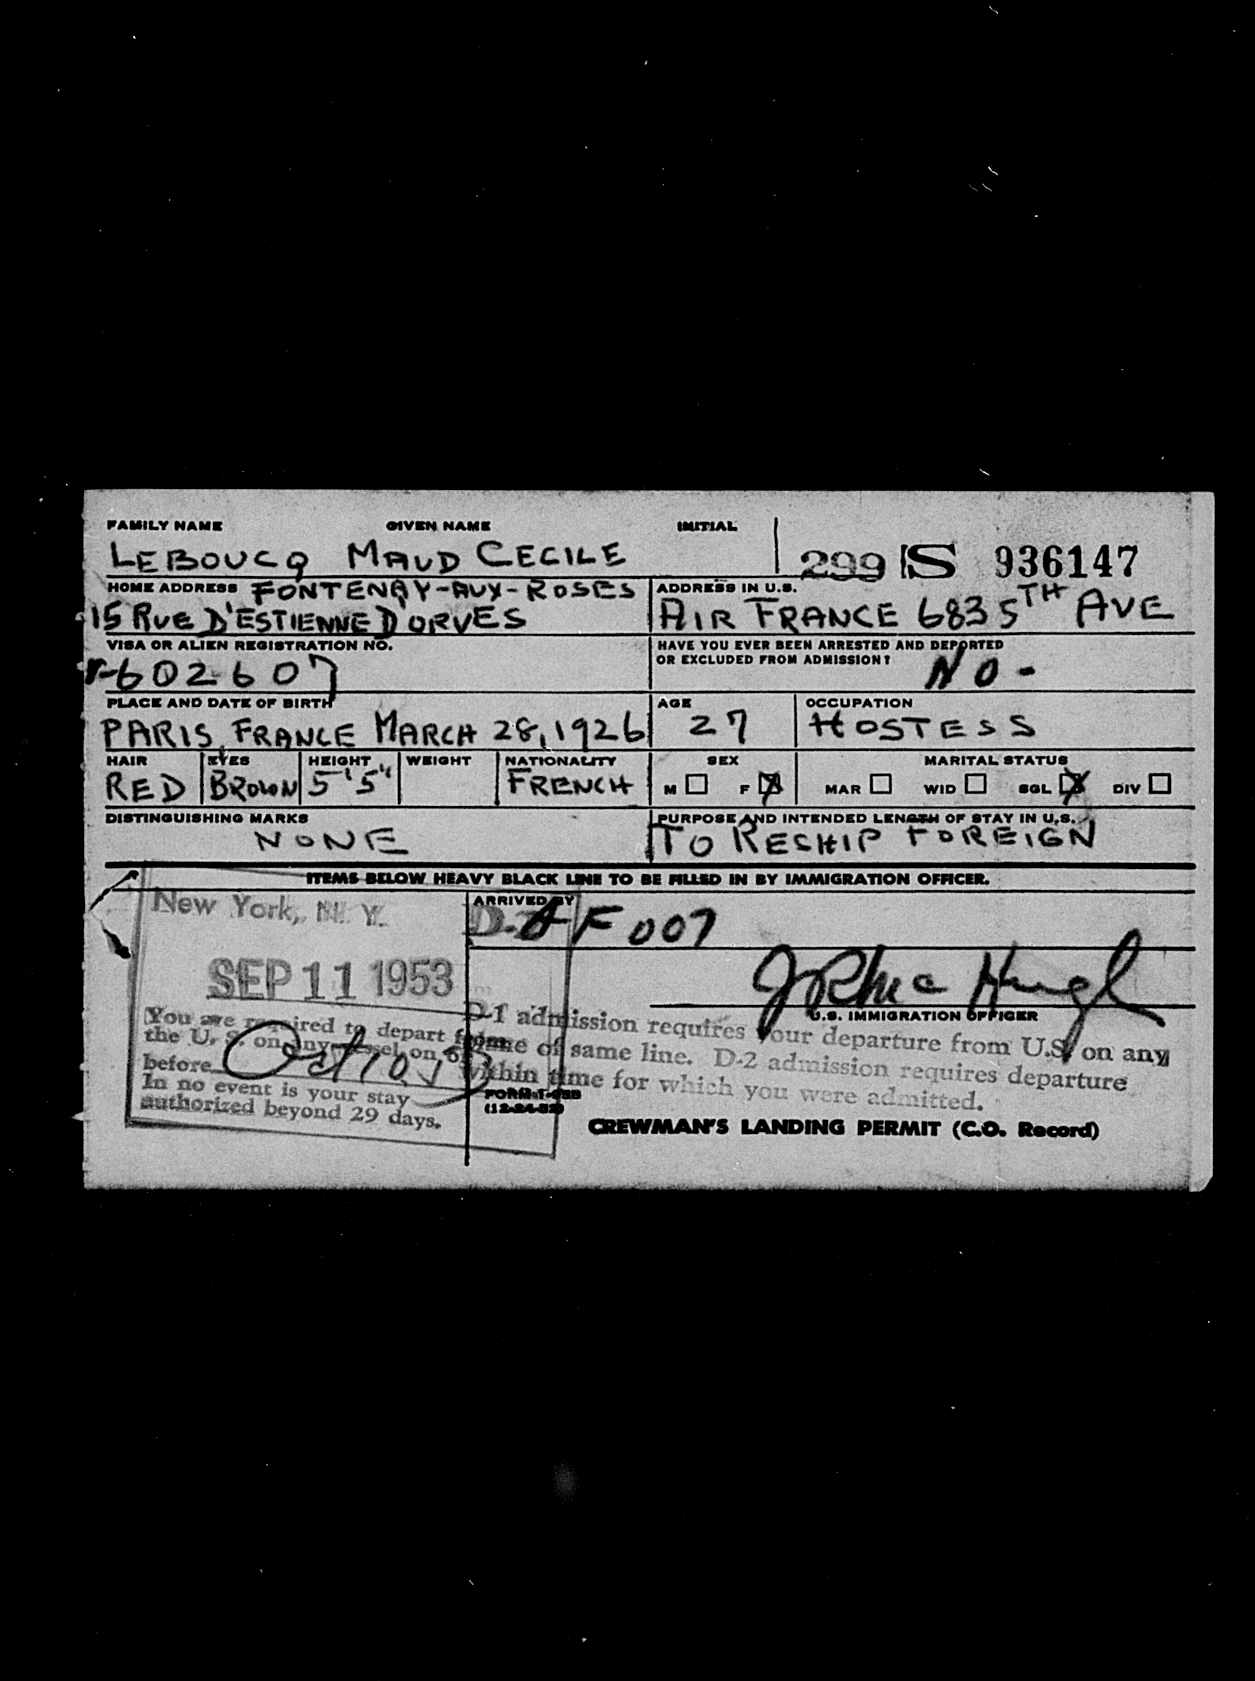 FAMILY NAME GIVEN NAME INITIAL
LEBOUCQ MAUD CECILE
299 IS 936147
HOME ADDRESS FONTENAY-AUX-ROSES
15 RUE D'ESTIENNE D'ORVES
ADDRESS IN U.S.
AIR FRANCE 683 5TH AVE
VISA OR ALIEN REGISTRATION NO.
602607
HAVE YOU EVER BEEN ARRESTED AND DEPORTED
OR EXCLUDED FROM ADMISSION?
NO -
PLACE AND DATE OF BIRTH
PARIS, FRANCE MARCH 28, 1926
AGE
27
OCCUPATION
HOSTESS
HAIR
RED
EYES
BROWN
HEIGHT
5'5"
WEIGHT
NATIONALITY
FRENCH
SEX
M F
MARITAL STATUS
MAR WID SGL DIV
DISTINGUISHING MARKS
NONE
PURPOSE AND INTENDED LENGTH OF STAY IN U.S.
TO RESHIP FOREIGN
ITEMS BELOW HEAVY BLACK LINE TO BE FILLED IN BY IMMIGRATION OFFICER.
New York, N. Y.
SEP 11 1953
You are required to depart from
the U. S. on any vessel on or
before Oct 10, 53
In no event is your stay
authorized beyond 29 days.
ARRIVED BY
AF 007
U.S. IMMIGRATION OFFICER
D-1 admission requires your departure from U.S. on any
plane of same line. D-2 admission requires departure
within time for which you were admitted.
(12-24-52)
CREWMAN'S LANDING PERMIT (C.O. Record)